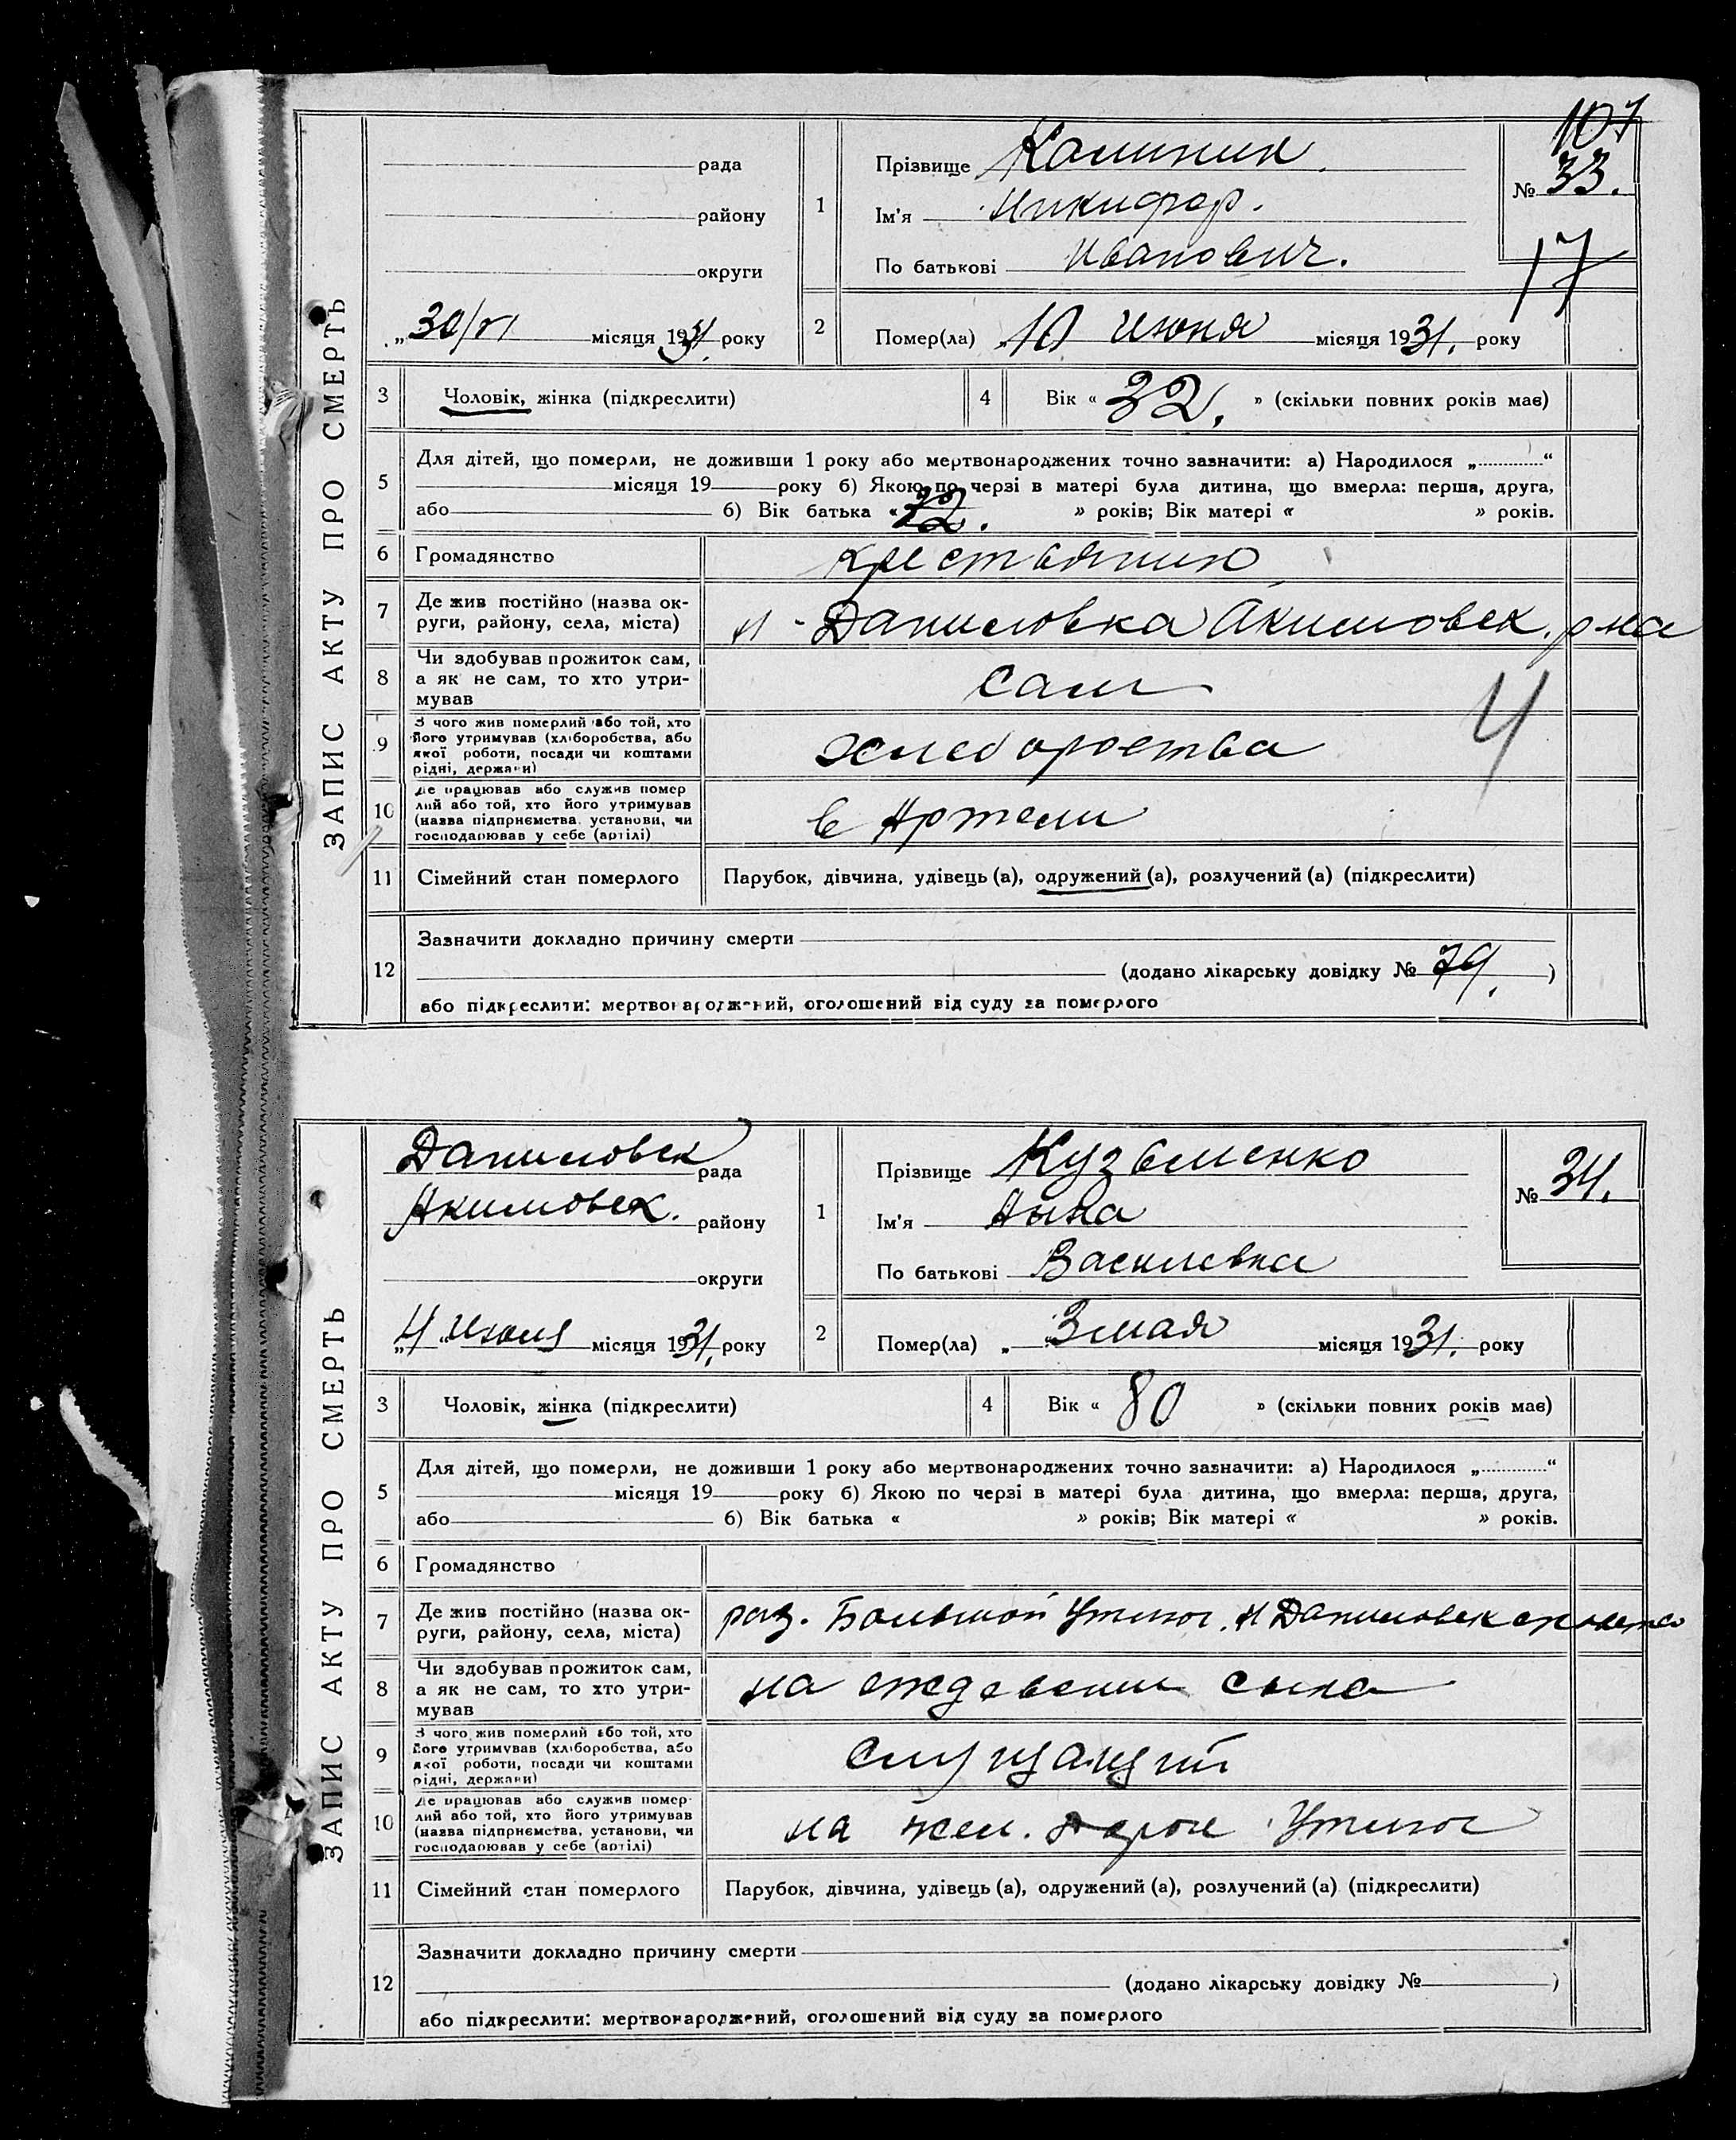 ЗАПИС АКТУ ПРО СМЕРТЬ
107
рада
району
округи
„30/VI місяця 1931. року
1
Прізвище Калинин.
Ім'я Никифор.
По батькові Иванович.
№ 33.
17
2
Помер(ла) 10 Июня місяця 1931. року
3 Чоловік, жінка (підкреслити)
4 Вік « 32. » (скільки повних років має)
5 Для дітей, що померли, не доживши 1 року або мертвонароджених точно зазначити: а) Народилося „ “
місяця 19 року б) Якою по черзі в матері була дитина, що вмерла: перша, друга,
або б) Вік батька « 32. » років; Вік матері « » років.
6 Громадянство крестьянин
7 Де жив постійно (назва округи, району, села, міста) Даниловка Акимовск. р-на
8 Чи здобував прожиток сам, а як не сам, то хто утримував сам
4
9 З чого жив померлий або той, хто його утримував (хліборобства, або якої роботи, посади чи коштами рідні, держави)
10 Де працював або служив померлий або той, хто його утримував (назва підприємства, установи, чи господарював у себе (артілі) в Артели
11 Сімейний стан померлого Парубок, дівчина, удівець (а), одружений (а), розлучений (а) (підкреслити)
12 Зазначити докладно причину смерти
(додано лікарську довідку № 79. )
або підкреслити: мертвонароджений, оголошений від суду за померлого
ЗАПИС АКТУ ПРО СМЕРТЬ
Даниловск рада
Акимовск. району
округи
„4 Июля місяця 1931. року
1
Прізвище Кузьменко
Ім'я Анна
По батькові Василевна
№ 34.
2
Помер(ла) „ 3 мая місяця 1931. року
3 Чоловік, жінка (підкреслити)
4 Вік « 80 » (скільки повних років має)
5 Для дітей, що померли, не доживши 1 року або мертвонароджених точно зазначити: а) Народилося „ “
місяця 19 року б) Якою по черзі в матері була дитина, що вмерла: перша, друга,
або б) Вік батька « » років; Вік матері « » років.
6 Громадянство
7 Де жив постійно (назва округи, району, села, міста) раз. Большой Утлюг. Даниловск
8 Чи здобував прожиток сам, а як не сам, то хто утримував на сына
9 З чого жив померлий або той, хто його утримував (хліборобства, або якої роботи, посади чи коштами рідні, держави)
10 Де працював або служив померлий або той, хто його утримував (назва підприємства, установи, чи господарював у себе (артілі) на жел. Дороге Утлюг
11 Сімейний стан померлого Парубок, дівчина, удівець (а), одружений (а), розлучений (а) (підкреслити)
12 Зазначити докладно причину смерти
(додано лікарську довідку № )
або підкреслити: мертвонароджений, оголошений від суду за померлого